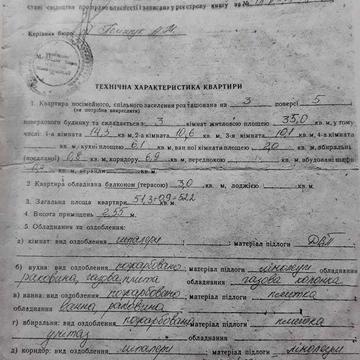 стані свідоцтва про право власності і записана у реєстрову книгу за №
Керівник бюро
М. П.
ТЕХНІЧНА ХАРАКТЕРИСТИКА КВАРТИРИ
1. Квартира посімейного, спільного заселення розташована на 3 поверсі 5
(не потрібне викреслити)
поверхового будинку та складається з 3 кімнат житловою площею 35,0 кв. м, у тому
числі: 1-а кімната 14,3 кв. м, 2-а кімната 10,6 кв. м, 3-я кімната 10,1 кв. м, 4-а кімната
кв. м, кухні площею 6,1 кв. м, ванної кімнати площею 2,0 кв. м, вбиральні
(носилані) 0,8 кв. м, коридору 6,9 кв. м, передпокою кв. м, вбудовані шафи
кв. м, веранди кв. м.
2 Квартира обладнана балконом (терасою) 3,0 кв. м, лоджією кв. м.
3. Загальна площа квартири 51,3+0,9=52,2 кв. м.
4. Висота приміщень 2,55 м.
5 Обладнання та оздоблення:
а) кімнат: вид оздоблення шпалери; матеріал підлоги ДВП
б) кухня: вид оздоблення пофарбовано, матеріал підлоги лінолеум
раковина, газова плита обладнання газова колонка
в) ванна: вид оздоблення пофарбовано, матеріал підлоги плитка
обладнання ванна раковина
г) вбиральня: вид оздоблення пофарбовано, матеріал підлоги плитка
унітаз
д) коридор: вид оздоблення шпалери, матеріал підлоги лінолеум